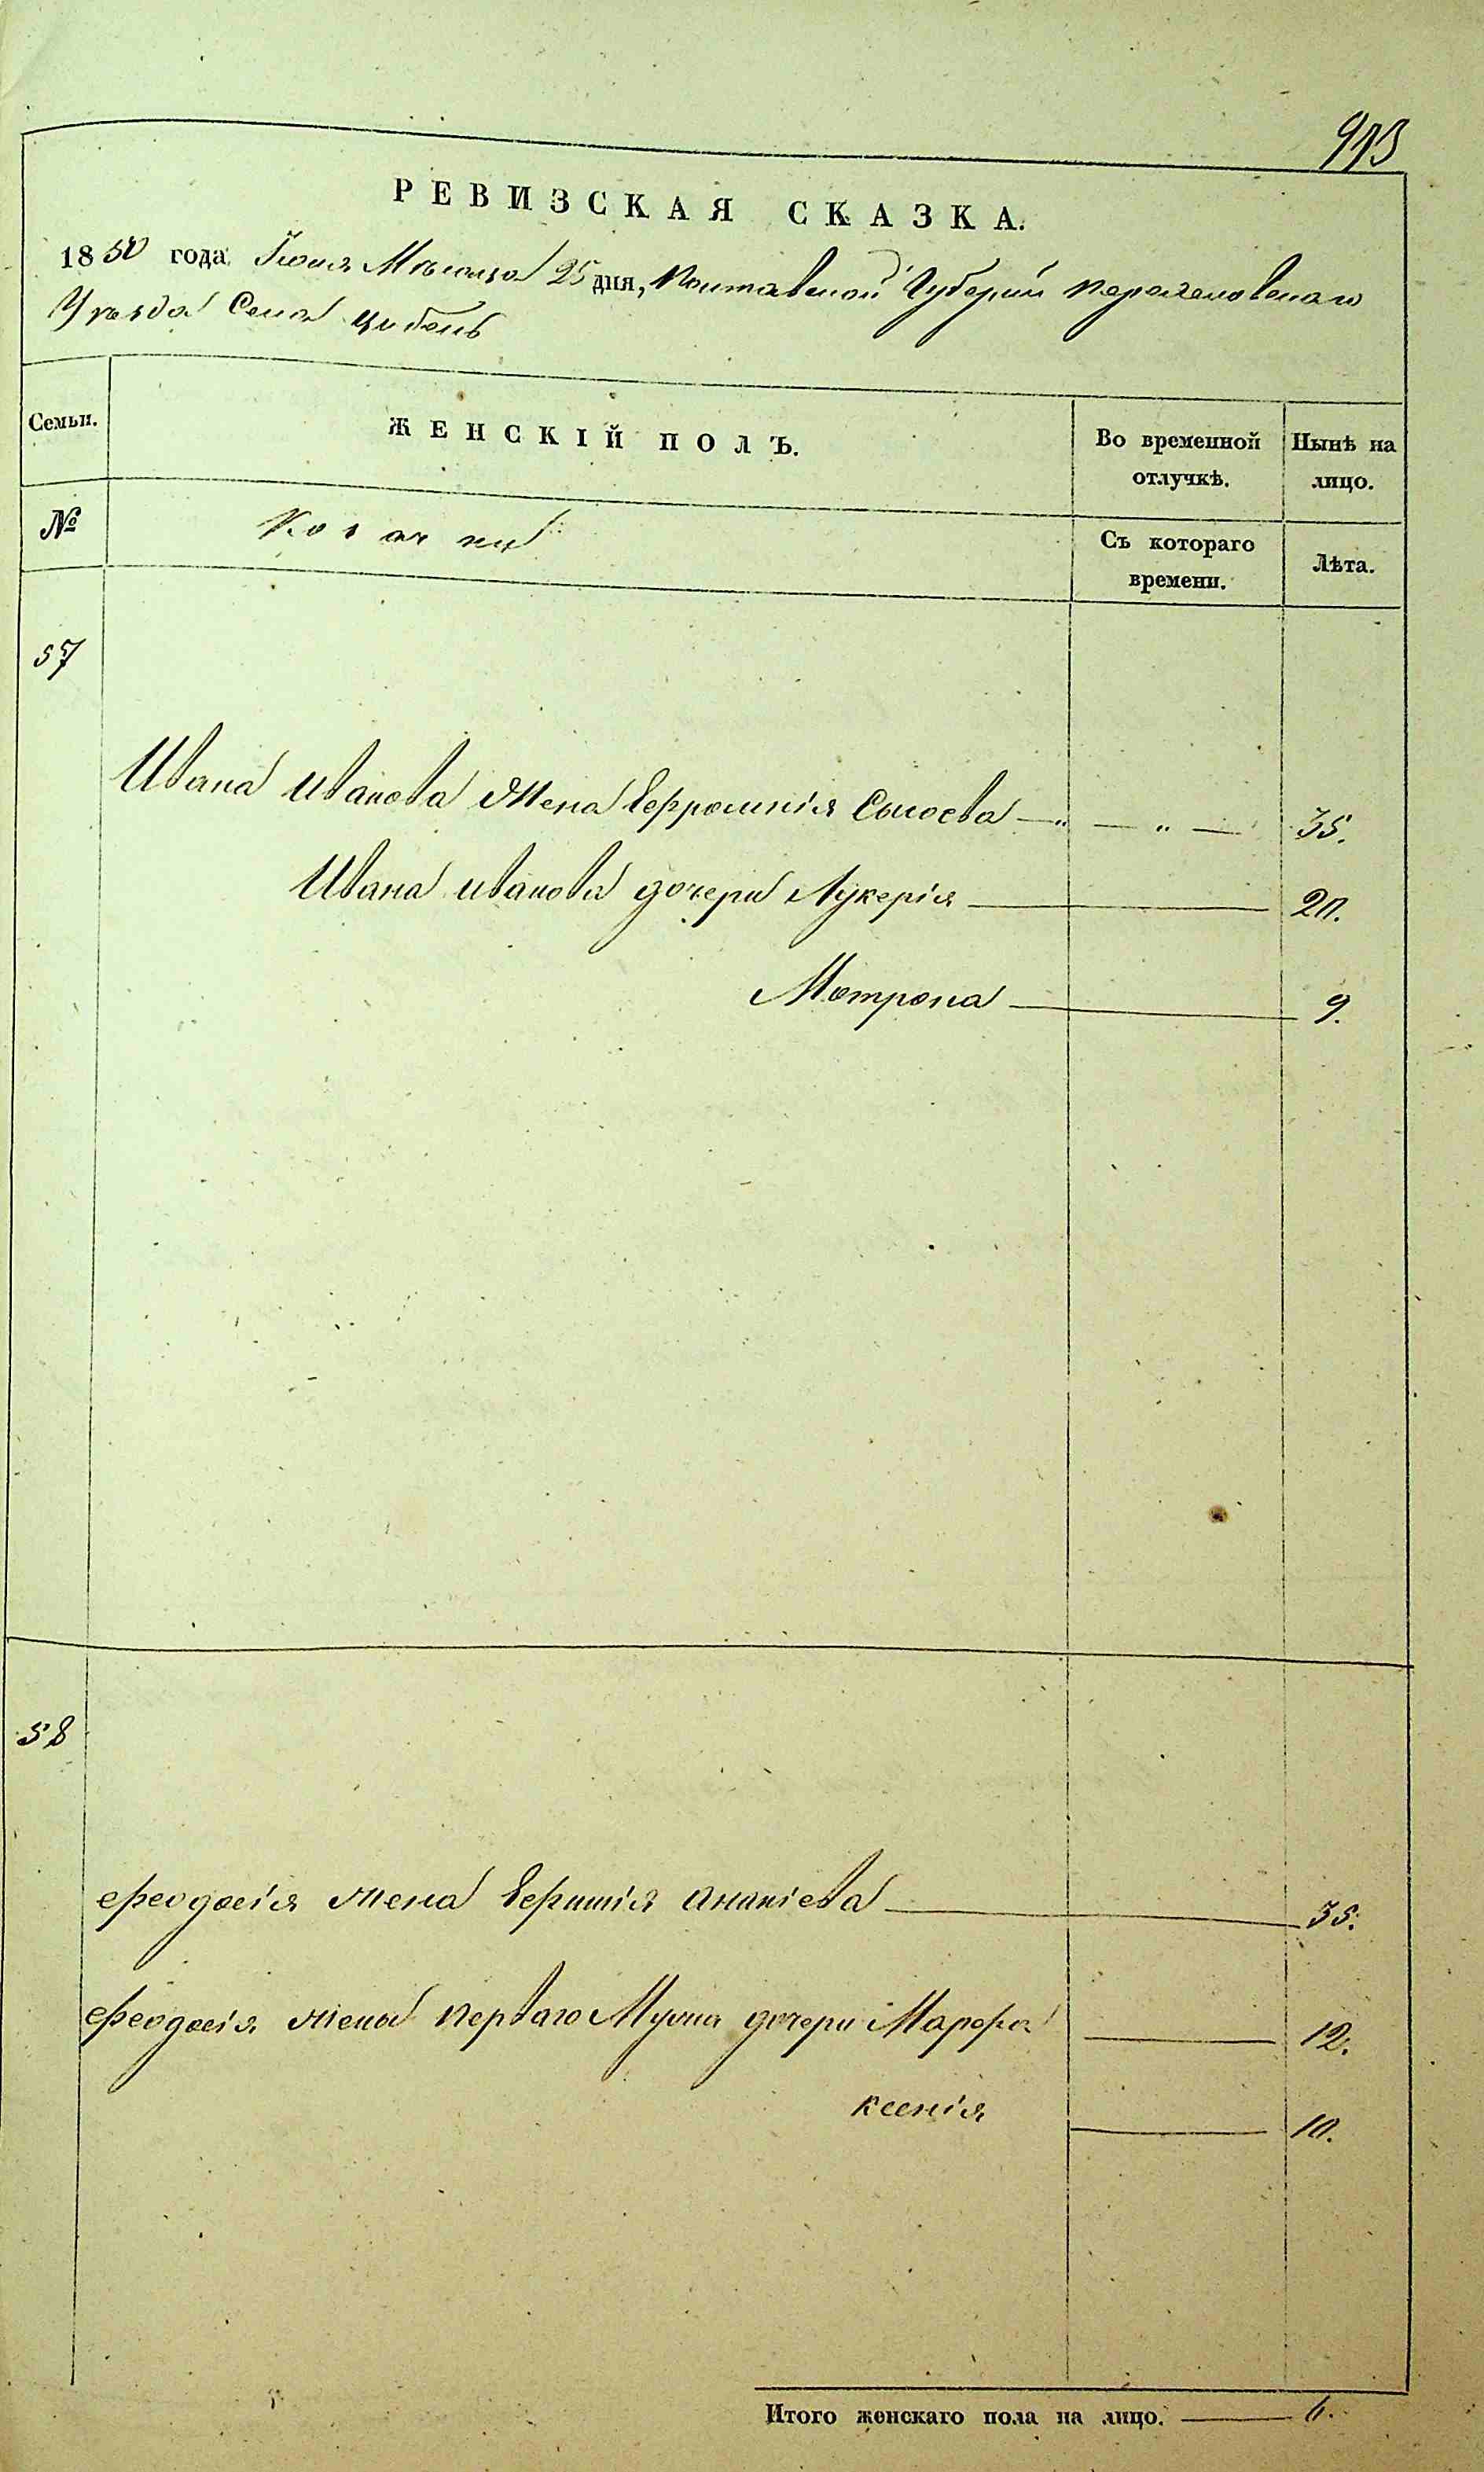 913
РЕВИЗСКАЯ СКАЗКА.
1850 года Іюля Мѣсяца 25 дня, Полтавской Губерніи Переяславскаго
Уѣзда Села Цибель
Семьи.
ЖЕНСКІЙ ПОЛЪ.
Во временной отлучкѣ.
Нынѣ на лицо.
№
Козачки
Съ котораго времени.
Лѣта.
57
Ивана Иванова Жена Ефросинія Сысоева — „ — „ — 35.
Ивана Иванова дочери Лукерія — 20.
Мотрона — 9.
58
Феодосія жена Евфимія Ананіева — 35.
Феодосія жены перваго Мужа дочери Марфа — 12.
Ксенія — 10.
Итого женскаго пола на лицо. — 6.